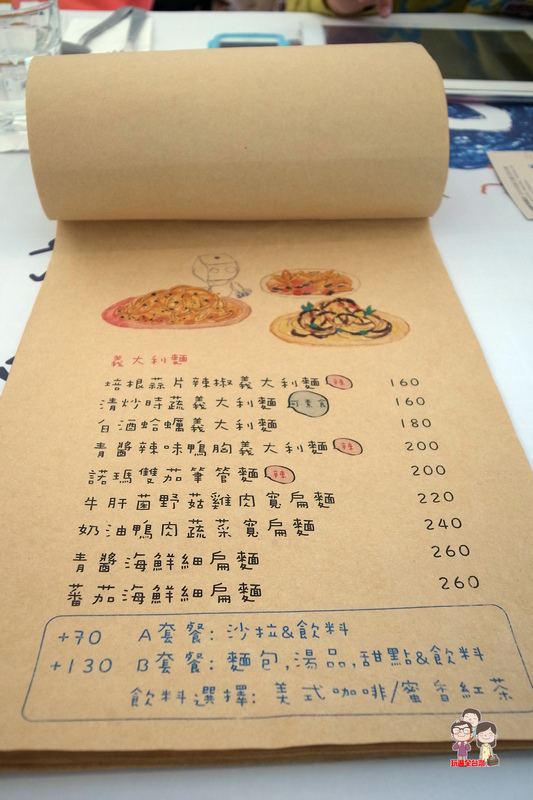 義大利麵
培根蒜片辣椒義大利麵 辣 160
清炒時蔬義大利麵 可素食 160
白酒蛤蠣義大利麵 180
青醬辣味鴨胸義大利麵 辣 200
諾瑪雙茄筆管麵 辣 200
牛肝菌野菇雞肉寬扁麵 220
奶油鴨肉蔬菜寬扁麵 240
青醬海鮮細扁麵 260
蕃茄海鮮細扁麵 260
+70 A套餐: 沙拉&飲料
+130 B套餐: 麵包,湯品,甜點&飲料
飲料選擇: 美式咖啡/蜜香紅茶
玩遍全台灣